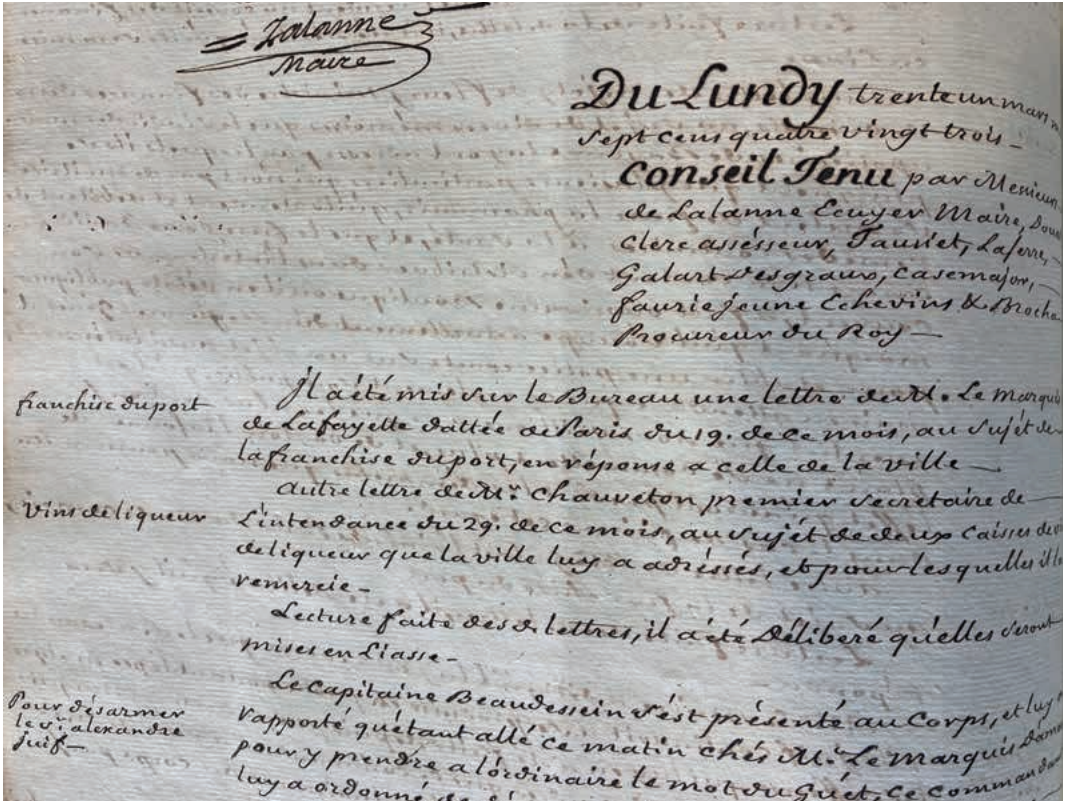 Lalanne
Maire
Du Lundy trente un mars m
sept cens quatre vingt trois
Conseil Tenu par Messieurs
de Lalanne Ecuyer Maire, Dou
clerc assésseur, Tauziet, Laserre,
Galart Desgraux, Casemajor,
faurie jeune Echevins & Brocha
Procureur du Roy
franchise du port
Il a été mis sur le Bureau une lettre de M. Le marquis
de Lafayette dattée de Paris du 19. de ce mois, au sujét de
la franchise du port, en réponse a celle de la ville
Vins de liqueur
autre lettre de Mr. Chauveton premier Secretaire de
L'intendance du 29. de ce mois, au sujét de deux Caisses de
de liqueur que la ville luy a adréssés, et pour lesquelles il la
remercie
Lecture faite des d. lettres, il a été Déliberé qu'elles seront
mises en Liasse
Pour désarmer
le sr. alexandre
juif
Le Capitaine Beaudessein s'est présenté au Corps, et luy
rapporté qu'étant allé ce matin chés Mr. Le marquis Damo
pour y prendre a l'ordinaire le mot du Guét, ce Commandan
luy a ordonné de